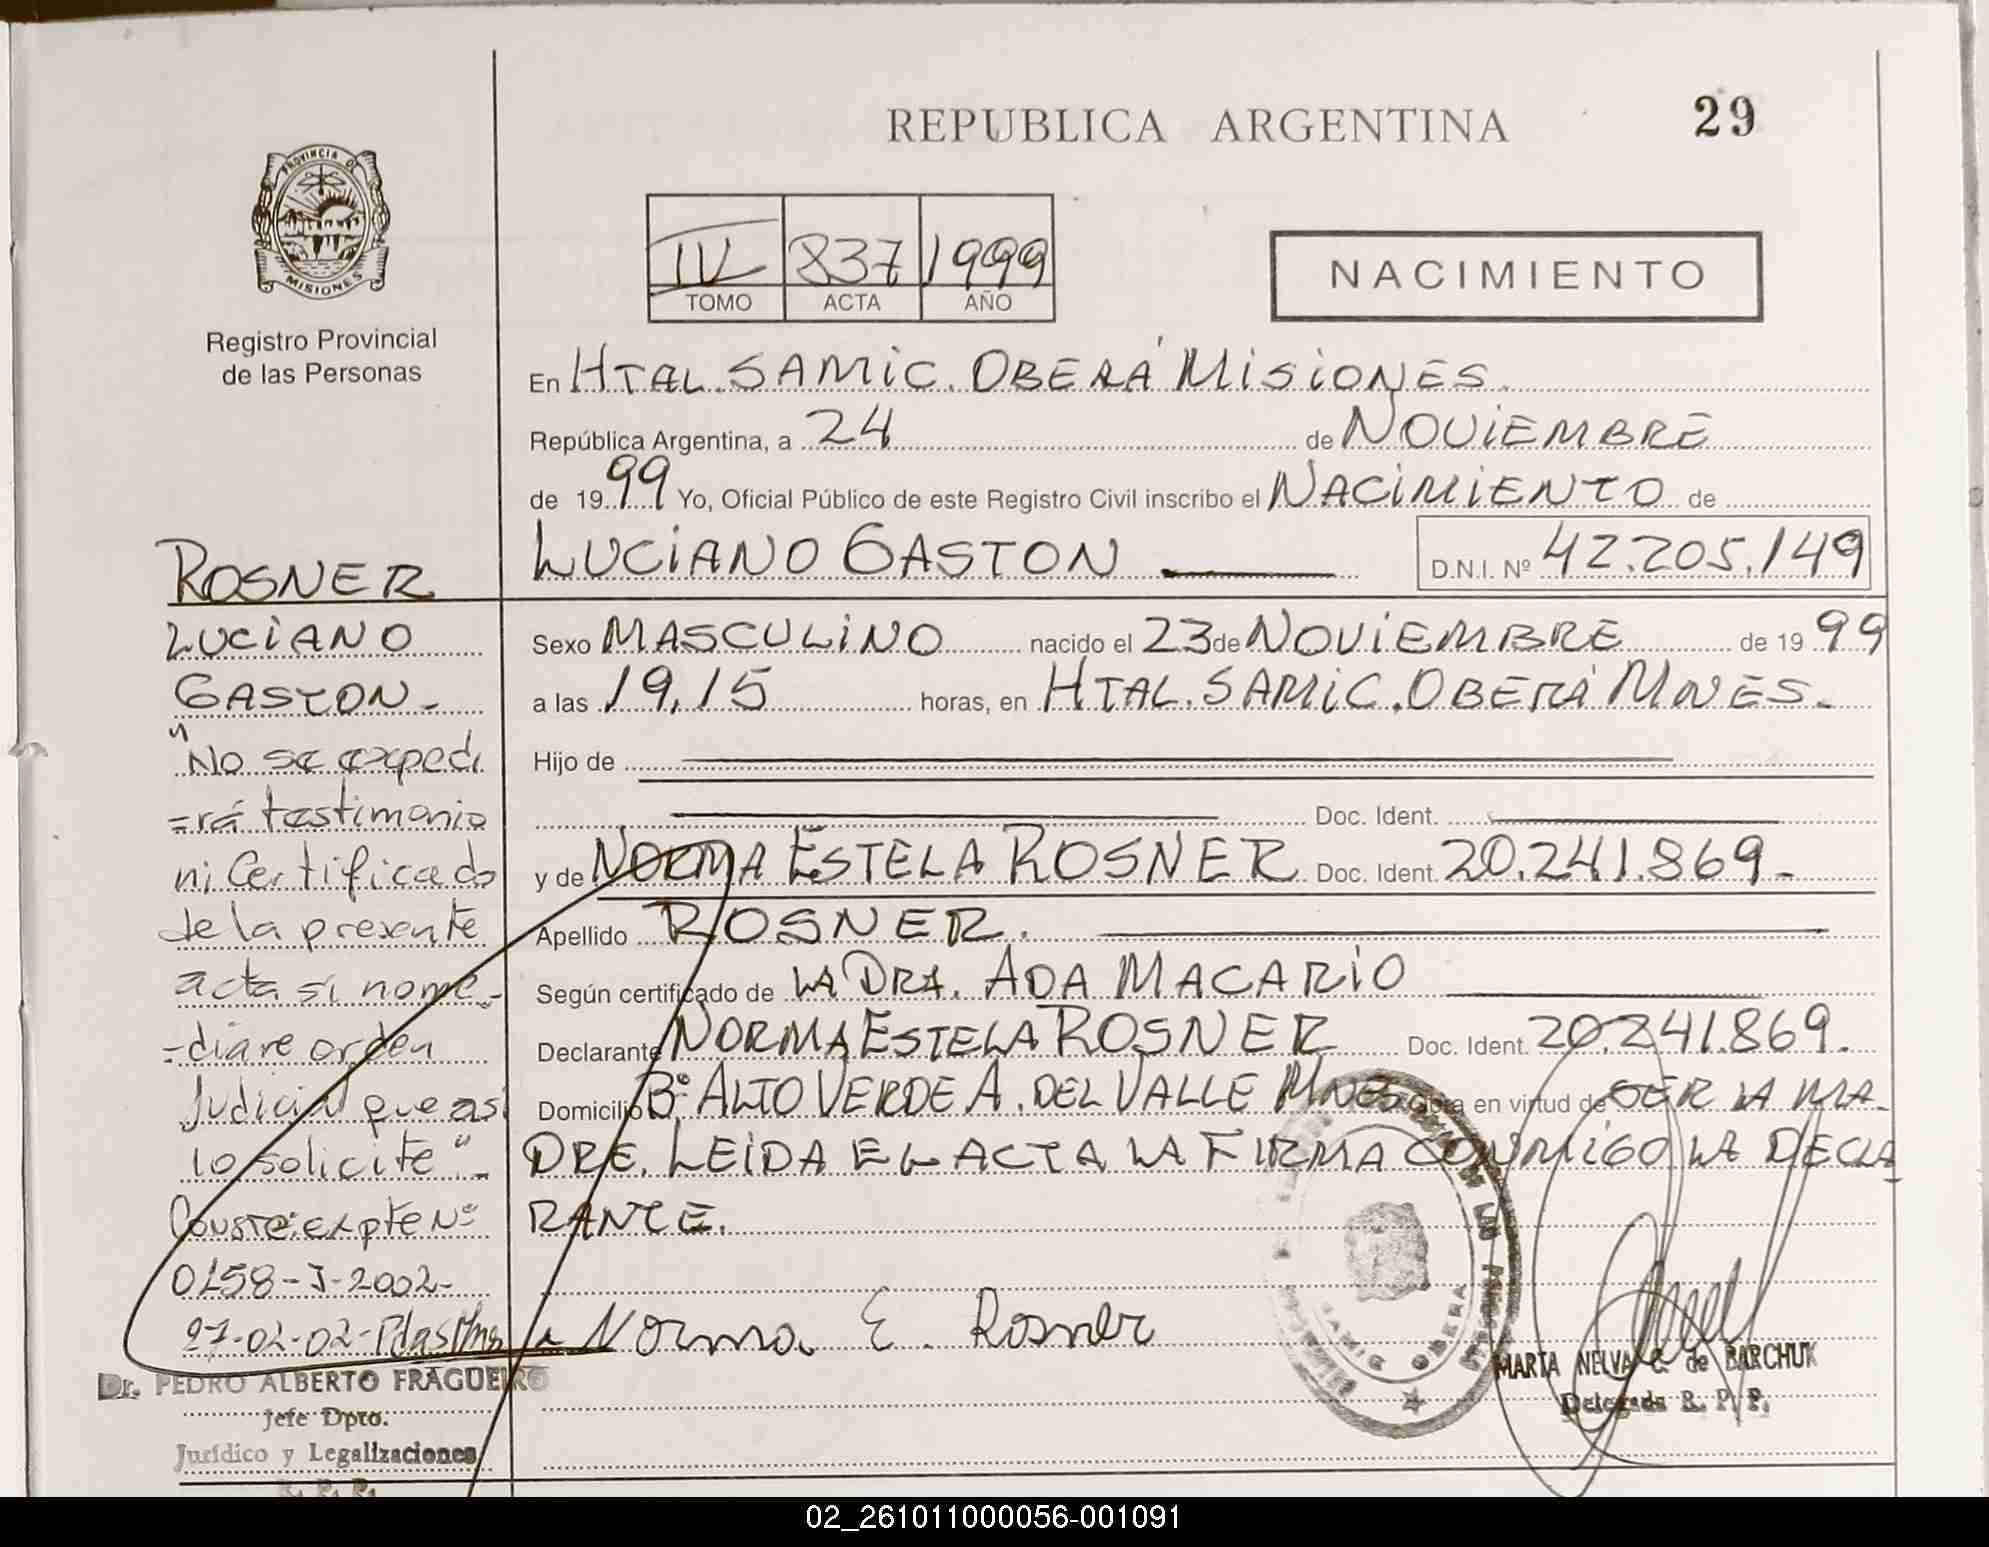 REPUBLICA ARGENTINA
29
PROVINCIA DE
MISIONES
Registro Provincial
de las Personas
IV 837 1999
TOMO ACTA AÑO
NACIMIENTO
En HTAL. SAMIC. OBERÁ MISIONES.
República Argentina, a 24 de NOVIEMBRE
de 1999 Yo, Oficial Público de este Registro Civil inscribo el NACIMIENTO de
LUCIANO GASTON D.N.I. Nº 42.205.149
Sexo MASCULINO nacido el 23 de NOVIEMBRE de 1999
a las 19,15 horas, en HTAL. SAMIC. OBERÁ MNES.
Hijo de
Doc. Ident.
y de NORMA ESTELA ROSNER Doc. Ident. 20.241.869.
Apellido ROSNER.
Según certificado de LA DRA. ADA MACARIO
Declarante NORMA ESTELA ROSNER Doc. Ident. 20.241.869.
Domicilio Bº ALTO VERDE A. DEL VALLE MNES Obra en virtud de SER LA MA-
DRE. LEIDA EL ACTA LA FIRMA CONMIGO LA DECLA
RANTE.
Norma E. Rosner
MARTA NELVA C. de BARCHUK
Delegada R. P. P.
SAMIC OBERA
ROSNER
LUCIANO
GASTON.-
"No se expedi
=rá testimonio
ni Certificado
de la presente
acta si nome-
=diare orden
Judicial que así
lo solicite".-
Conste: expte Nº
0158-J-2002-
27-02-02-Pdas Mnes
Dr. PEDRO ALBERTO FRAGUEIRO
Jefe Dpto.
Jurídico y Legalizaciones
R. P. P.
02_261011000056-001091